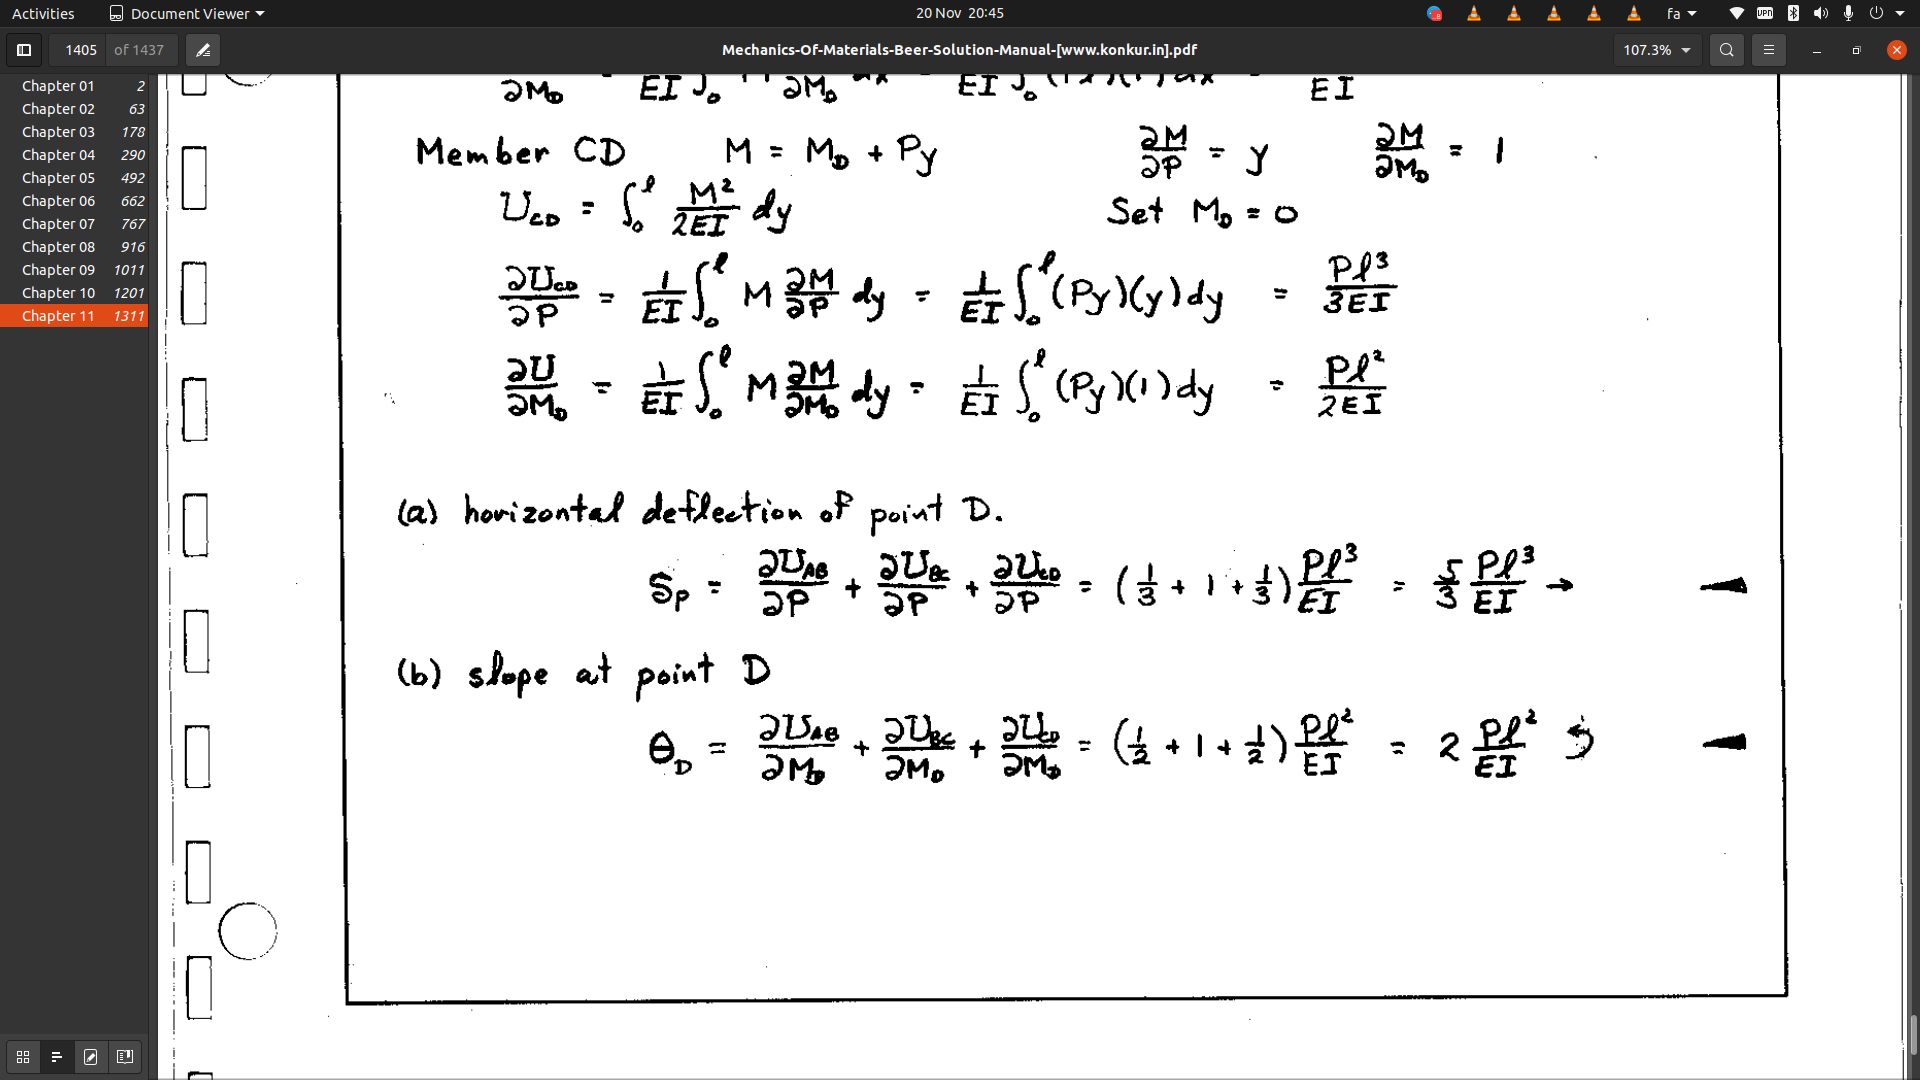 Activities Document Viewer 20 Nov 20:45 fa VPN
1405 of 1437 Mechanics-Of-Materials-Beer-Solution-Manual-[www.konkur.in].pdf 107.3%
Chapter 01 2
Chapter 02 63
Chapter 03 178
Chapter 04 290
Chapter 05 492
Chapter 06 662
Chapter 07 767
Chapter 08 916
Chapter 09 1011
Chapter 10 1201
Chapter 11 1311
Member CD M = M_D + Py ∂M/∂P = y ∂M/∂M_D = 1
U_CD = ∫₀^l M²/2EI dy Set M_D = 0
∂U_CD/∂P = 1/EI ∫₀^l M ∂M/∂P dy = 1/EI ∫₀^l (Py)(y) dy = Pl³/3EI
∂U/∂M_D = 1/EI ∫₀^l M ∂M/∂M_D dy = 1/EI ∫₀^l (Py)(1) dy = Pl²/2EI
(a) horizontal deflection of point D.
δ_P = ∂U_AB/∂P + ∂U_BC/∂P + ∂U_CD/∂P = (1/3 + 1 + 1/3) Pl³/EI = 5/3 Pl³/EI →
(b) slope at point D
θ_D = ∂U_AB/∂M_D + ∂U_BC/∂M_D + ∂U_CD/∂M_D = (1/2 + 1 + 1/2) Pl²/EI = 2 Pl²/EI